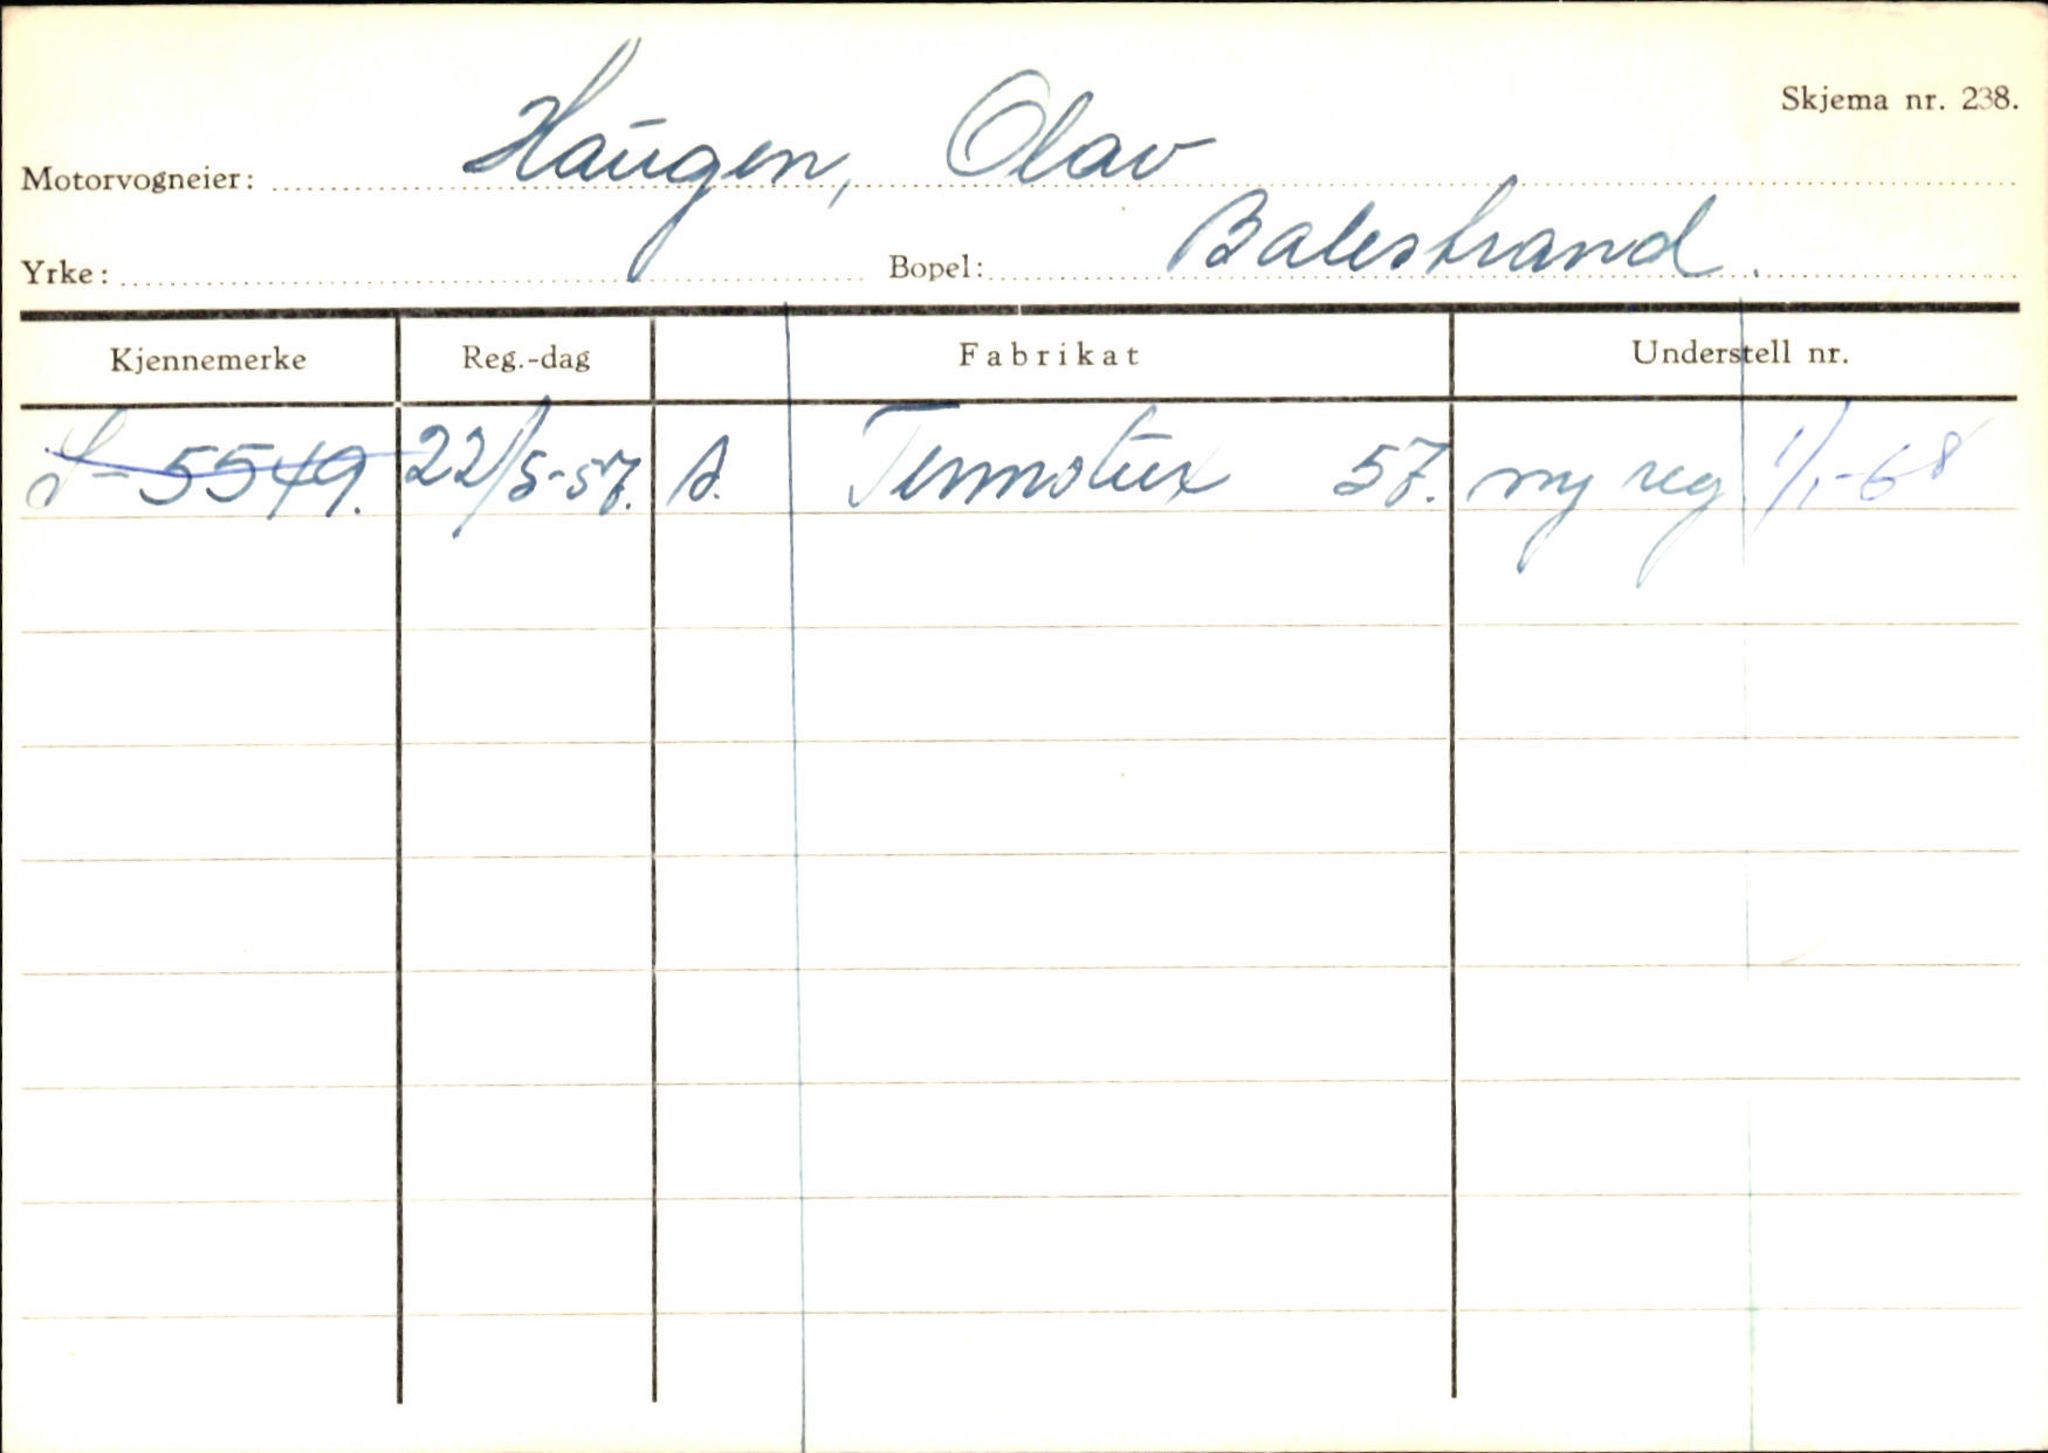 Skjema nr. 238.
Motorvogneier: Haugen, Olav
Yrke: Bopel: Balestrand.
Kjennemerke Reg.-dag Fabrikat Understell nr.
S-5549. 22/5-57. A. 57. ny reg 1/1-68